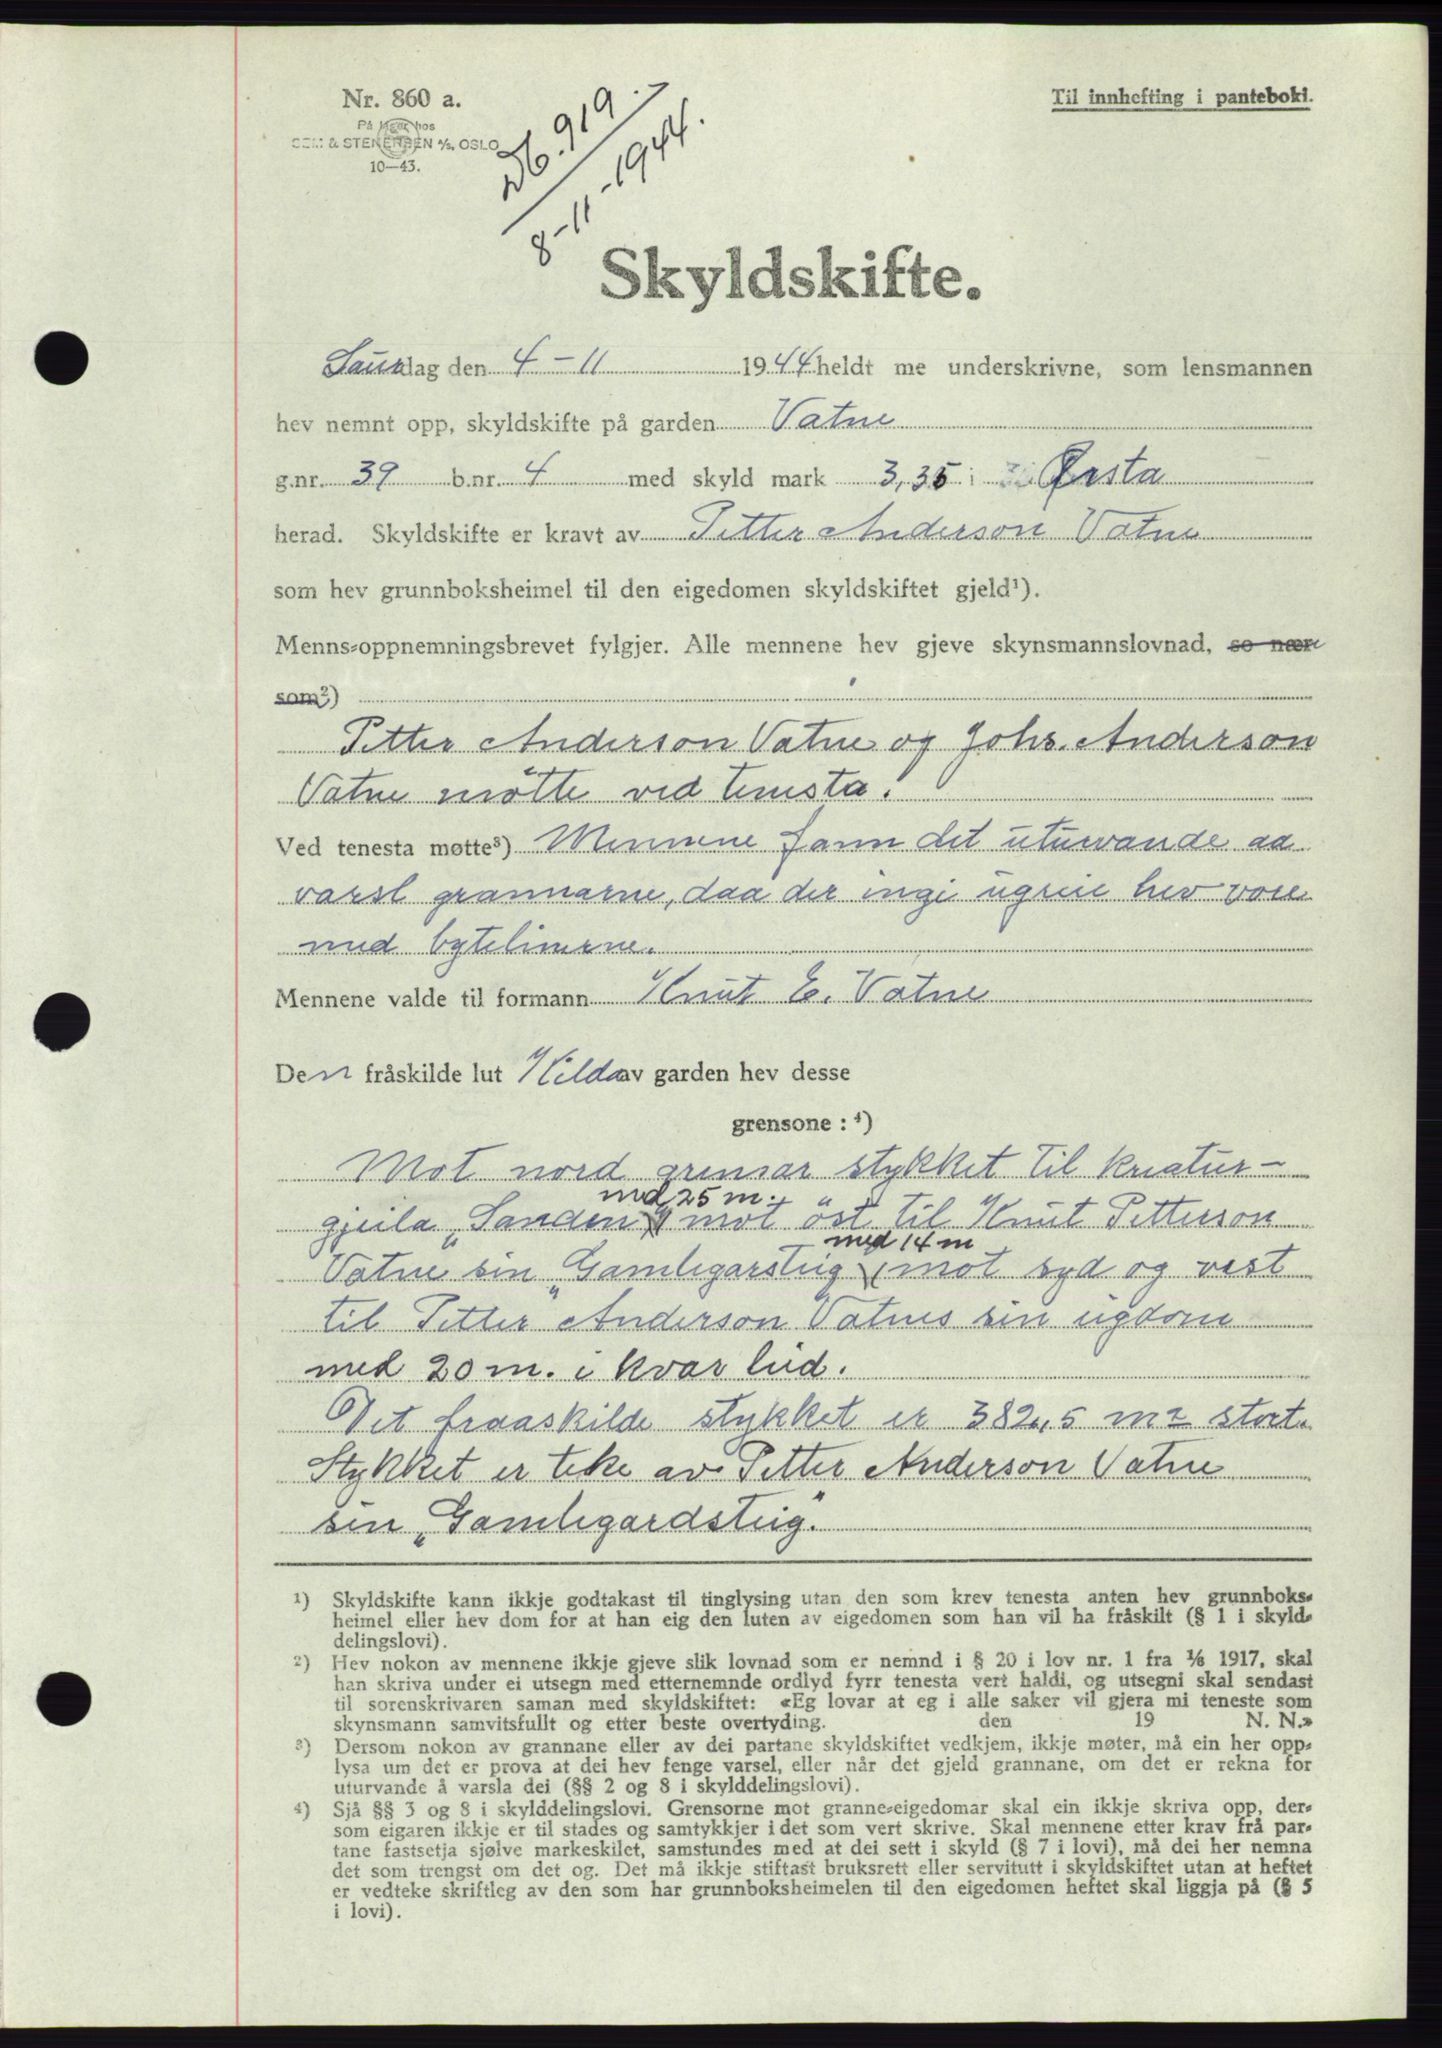 Nr. 860 a.
På lager hos
SEM & STENERSEN A/S, OSLO
10—43.
Til innhefting i panteboki.
Db. 919.
8-11-1944.
Skyldskifte.
Laurdag den 4-11 1944 heldt me underskrivne, som lensmannen
hev nemnt opp, skyldskifte på garden Vatne
g.nr. 39 b.nr. 4 med skyld mark 3,35 i Ørsta
herad. Skyldskifte er kravt av Petter Anderson Vatne
som hev grunnboksheimel til den eigedomen skyldskiftet gjeld¹).
Menns-oppnemningsbrevet fylgjer. Alle mennene hev gjeve skynsmannslovnad, so nær
som²)
Petter Anderson Vatne og Johs. Anderson
Vatne møtte ved tenesta.
Ved tenesta møtte³) Mennene fann det uturvande aa
varsl grannarne, daa der ingi ugreie hev vore
med bytelinerne.
Mennene valde til formann Knut E. Vatne
Den fråskilde lut Kilda av garden hev desse
grensone : ⁴)
Mot nord grensar stykket til kreatur-
med 25 m.
gjeila „Sanden", mot öst til Knut Petterson
med 14 m
Vatne sin „Gamlegarsteig", mot syd og vest
til Petter Anderson Vatnes sin eigdom
med 20 m. i kvar leid.
Det fraaskilde stykket er 382,5 m² stort.
Stykket er teke av Petter Anderson Vatne
sin „Gamlegardsteig."
¹) Skyldskifte kann ikkje godtakast til tinglysing utan den som krev tenesta anten hev grunnboks-
heimel eller hev dom for at han eig den luten av eigedomen som han vil ha fråskilt (§ 1 i skyld-
delingslovi).
²) Hev nokon av mennene ikkje gjeve slik lovnad som er nemnd i § 20 i lov nr. 1 fra 1/6 1917, skal
han skriva under ei utsegn med etternemnde ordlyd fyrr tenesta vert haldi, og utsegni skal sendast
til sorenskrivaren saman med skyldskiftet: «Eg lovar at eg i alle saker vil gjera mi teneste som
skynsmann samvitsfullt og etter beste overtyding. den 19 N. N.»
³) Dersom nokon av grannane eller av dei partane skyldskiftet vedkjem, ikkje møter, må ein her opp-
lysa um det er prova at dei hev fenge varsel, eller når det gjeld grannane, om det er rekna for
uturvande å varsla dei (§§ 2 og 8 i skylddelingslovi).
⁴) Sjå §§ 3 og 8 i skylddelingslovi. Grensorne mot granne-eigedomar skal ein ikkje skriva opp, der-
som eigaren ikkje er til stades og samtykkjer i det som vert skrive. Skal mennene etter krav frå par-
tane fastsetja sjølve markeskilet, samstundes med at dei sett i skyld (§ 7 i lovi), må dei her nemna
det som trengst om det og. Det må ikkje stiftast bruksrett eller servitutt i skyldskiftet utan at heftet
er vedteke skriftleg av den som har grunnboksheimelen til den eigedomen heftet skal liggja på (§ 5
i lovi).